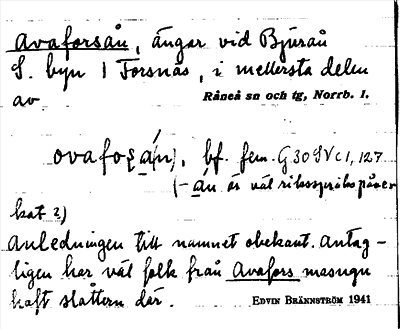 Avaforsån, ängar vid Bjurån
S. byn i Forsnäs, i mellersta delen
av. Råneå sn och tg, Norrb. l.
ovafoʂa̲(́n), bf. fem. G 30 S Vc1, 127
(-á̲n är väl riksspråkspåver
kat?)
Anledningen till namnet obekant. Antag-
ligen har väl folk från Avafors masugn
haft slåttern där. EDVIN BRÄNNSTRÖM 1941